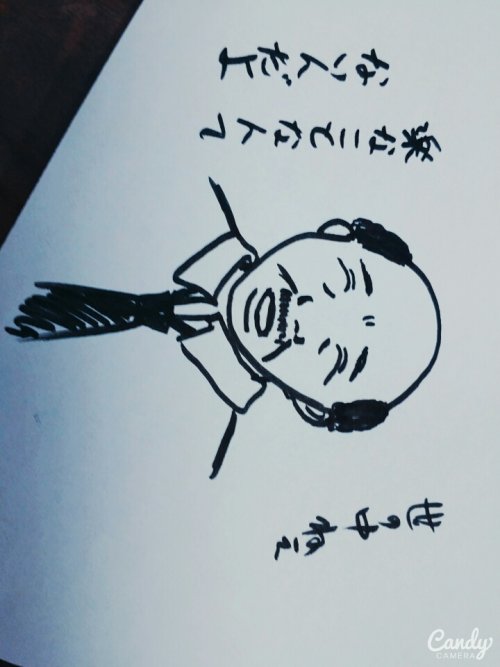 世の中ねぇ
楽なことなんて
ないんだよ
Candy
CAMERA